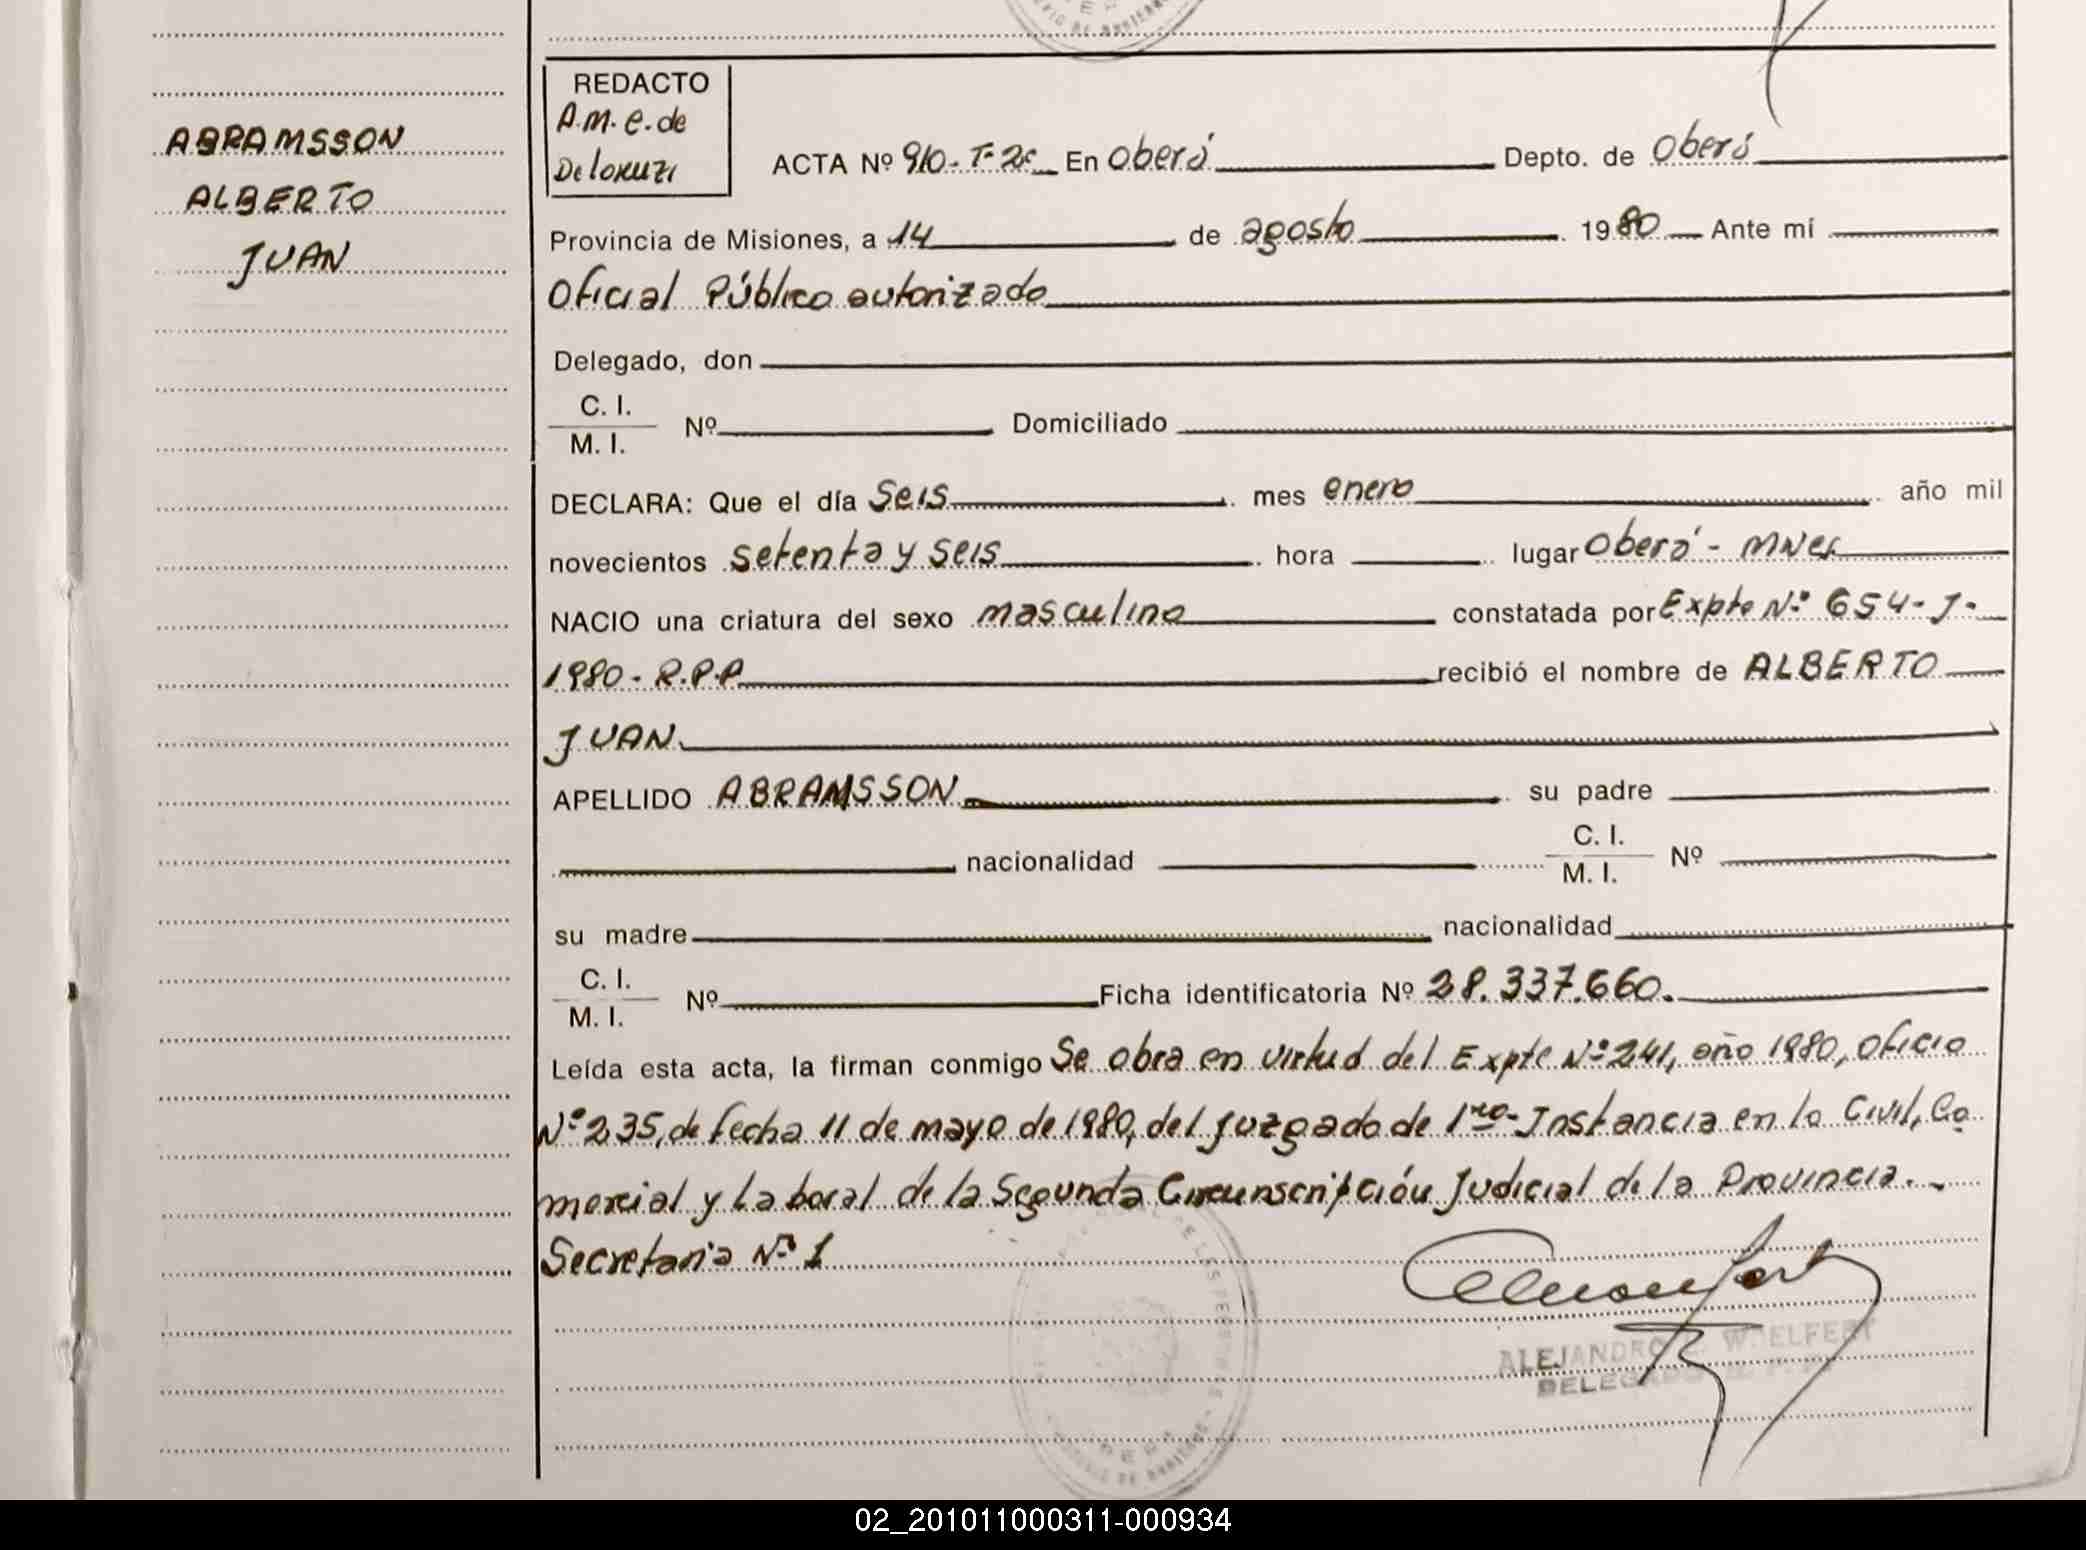 ABRAMSSON
ALBERTO
JUAN
REDACTO
A.M.E. de
ACTA Nº 910-T-2º En Oberá Depto. de Oberá
Provincia de Misiones, a 14 de agosto 1980 Ante mí
Oficial Público autorizado
Delegado, don
C. I.
M. I.
Nº Domiciliado
DECLARA: Que el día seis mes enero año mil
novecientos setenta y seis hora lugar Oberá - Mnes.
NACIO una criatura del sexo masculino constatada por Expte Nº 654-J-
1980 - R.P.P. recibió el nombre de ALBERTO
JUAN
APELLIDO ABRAMSSON su padre
nacionalidad C. I.
M. I. Nº
su madre nacionalidad
C. I.
M. I.
Nº Ficha identificatoria Nº 28.337.660.
Leída esta acta, la firman conmigo Se obra en virtud del Expte Nº 241, año 1980, Oficio
Nº 235, de fecha 11 de mayo de 1980, del Juzgado de 1ra. Instancia en lo Civil, Co
mercial y Laboral de la Segunda Circunscripción Judicial de la Provincia. -
Secretaria Nº 1
ALEJANDRO
DELEGADO
02_201011000311-000934